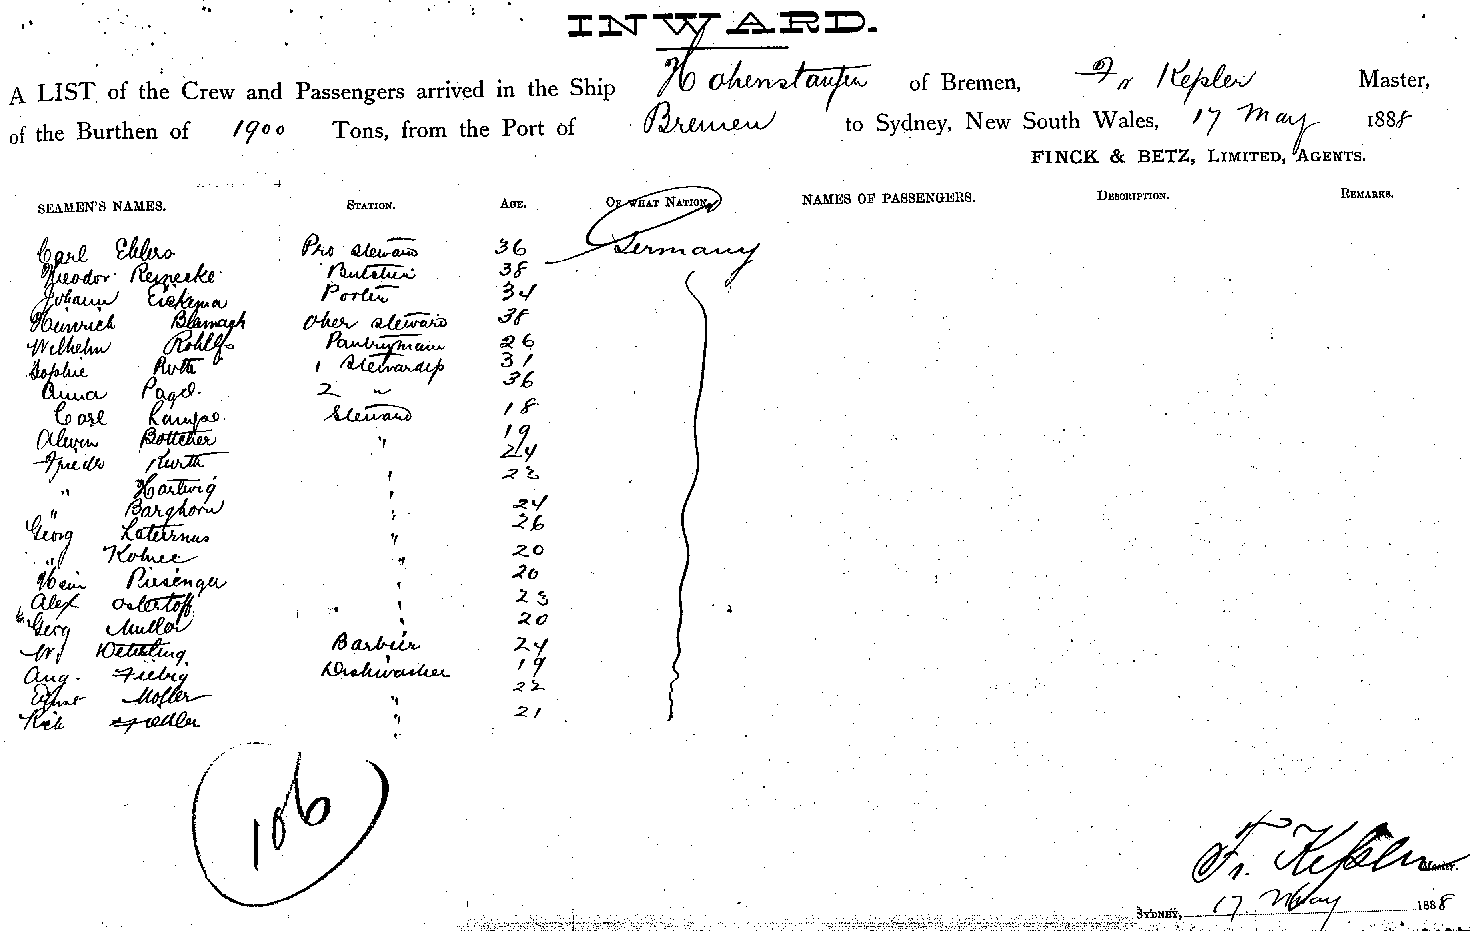 INWARD.
A LIST of the Crew and Passengers arrived in the Ship Hohenstaufen of Bremen, Fr Kessler Master,
of the Burthen of 1900 Tons, from the Port of Bremen to Sydney, New South Wales, 17 May 1888
FINCK & BETZ, LIMITED, AGENTS.
SEAMEN'S NAMES. STATION. AGE. OF WHAT NATION. NAMES OF PASSENGERS. DESCRIPTION. REMARKS.
Carl Ehlers Pro steward 36 Germany
Theodor Reinecke Butcher 38
Johann Eickema Porter 34
Heinrich Ober steward 38
Wilhelm Rohlfs Pantryman 26
Sophie Ruth 1 Stewardess 31
Anna Pagel. 2 " 36
Carl Lampe. Steward 18
Alwin Bottcher " 19
Friedr Kurth " 24
" Hartwig " 23
" Barghorn " 24
Georg Laternus " 26
" " 20
Hein Riesenger " 20
Alex Ostertoff " 23
Georg Muller " 20
W. Barbier 24
Aug. Fiebig Dishwasher 19
Ernst Moller " 22
Rich Fiedler " 21
106
Fr. Kessler Master.
SYDNEY, 17 May 1888